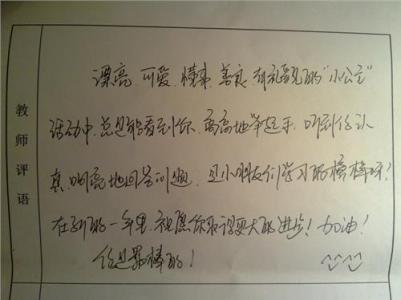 教师评语
漂亮、可爱、懂事、善良、有礼貌的“小公主”
活动中,总是能看到你高高地举起手,听到你认
真、响亮地回答问题,是小朋友们学习的榜样呀!
在新的一年里,祝愿你取得更大的进步!加油!
你是最棒的!